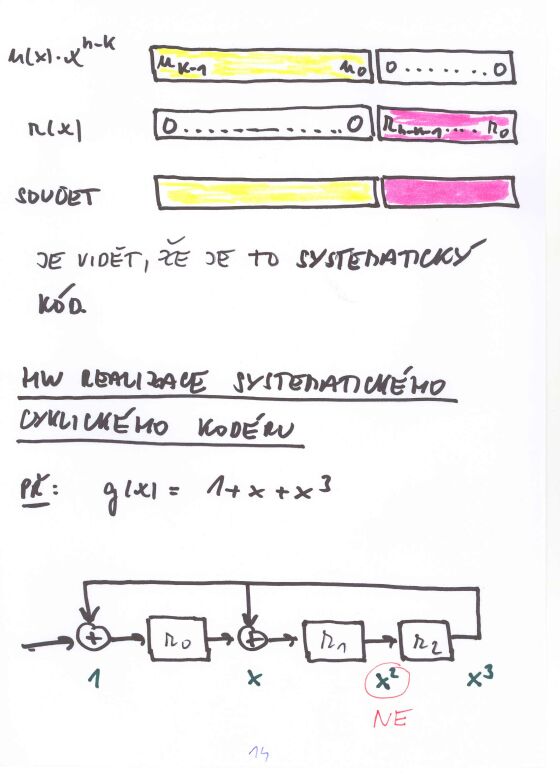 u(x)·x^{n-k} u_{k-1} u_0 0........0
r(x) 0.............0 r_{n-k-1}.... r_0
SOUČET
JE VIDĚT, ŽE JE TO SYSTEMATICKÝ
KÓD.
HW REALIZACE SYSTEMATICKÉHO
CYKLICKÉHO KODÉRU
PŘ: g(x) = 1+x+x^3
+ r_0 + r_1 r_2
1 x x^2 x^3
NE
14